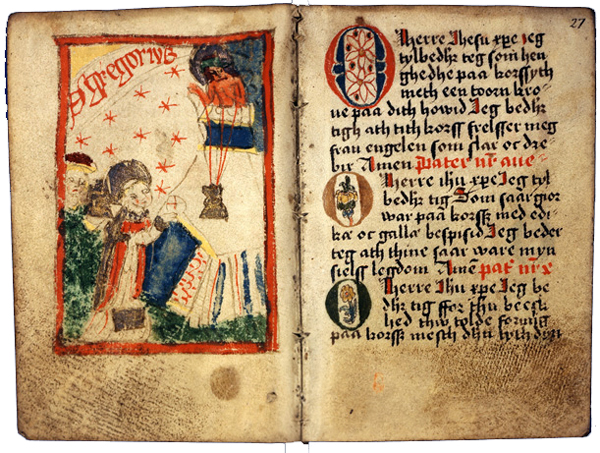 S gregorius
27
O herre Ihesu xpe Jeg
tylbedhr teg som hen
ghedhe paa korssyth
meth een toorn kro
ne paa dith howid Jeg bedhr
tigh ath tith korss frelsser meg
frau engelen som slar oc dre
bir Amen Pater nr aue
O herre ihu xpe Jeg tyl
bedhr tig Som saar gior
war paa korss med edi
kæ oc galla bespisid Jeg beder
teg ath thine saar ware myn
sielss legdom Amē pat nr
O herre Ihu xpe Jeg be
dhr tig ffor thn beesk
hed thw tolde for mig
paa korss mesth